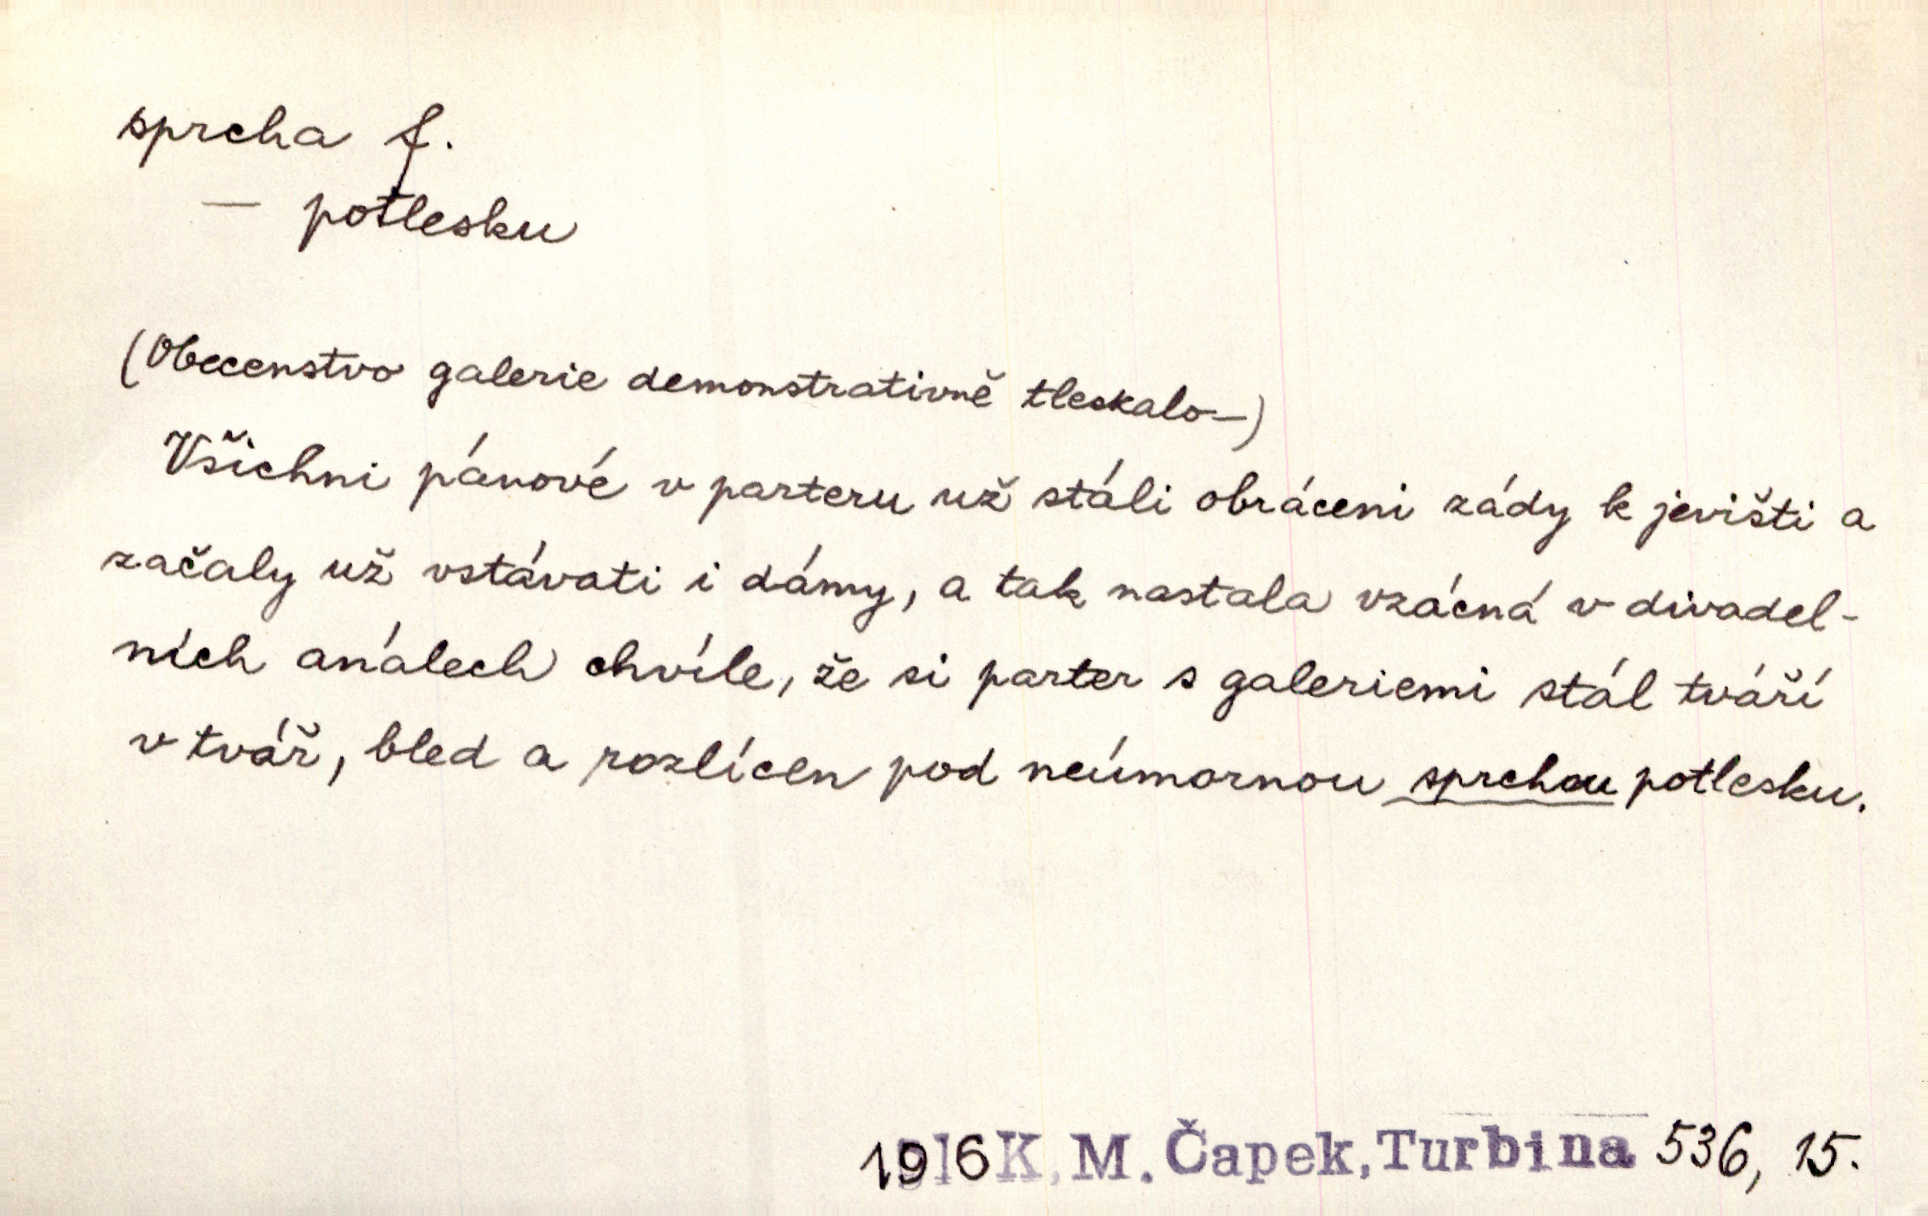 sprcha f.
— potlesku
(Obecenstvo galerie demonstrativně tleskalo—)
Všichni pánové v parteru už stáli obráceni zády k jevišti a
začaly už vstávati i dámy, a tak nastala vzácná v divadel-
ních análech chvíle, že si parter s galeriemi stál tváří
v tvář, bled a rozlícen pod neúmornou sprchou potlesku.
1916 K. M. Čapek, Turbina 536, 15.